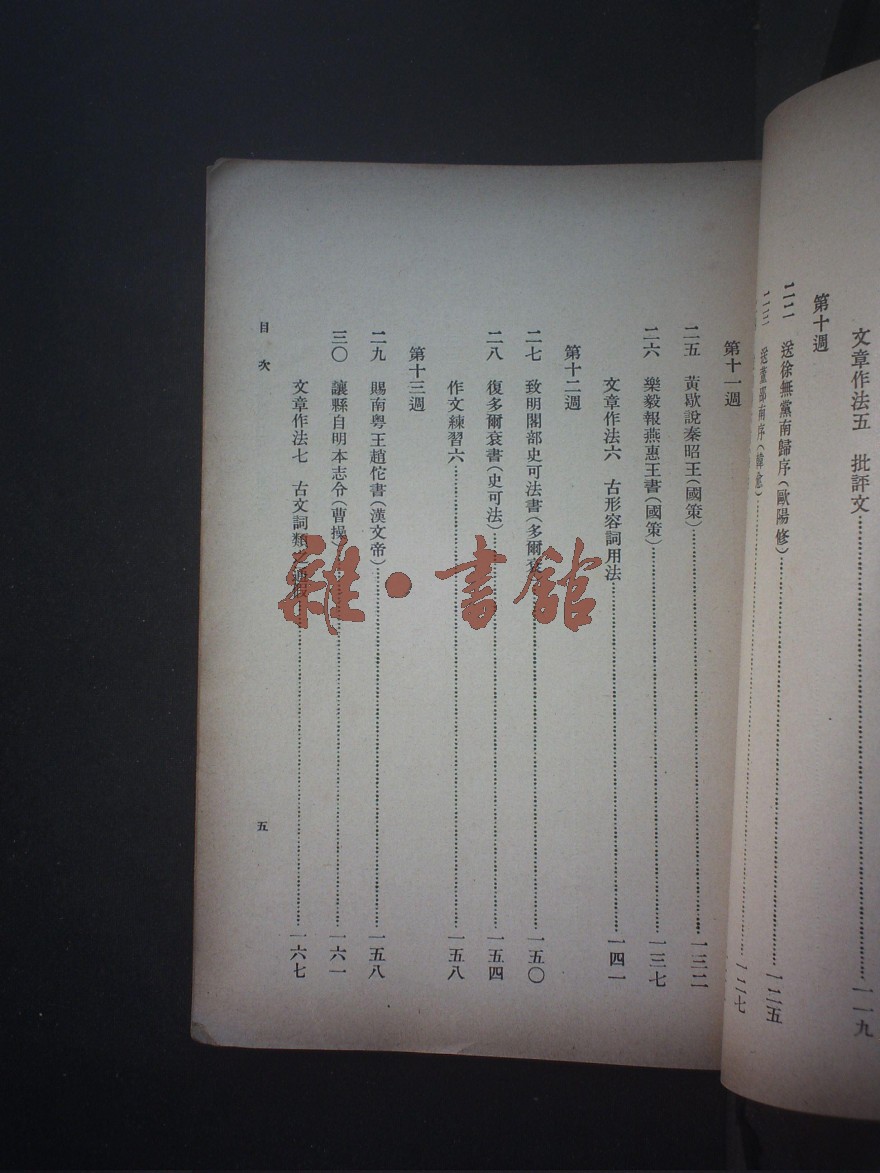 文章作法五 批評文……一一九
第十週
二二 送徐無黨南歸序(歐陽修)……一二五
二三 送董邵南序(韓愈)……一二七
第十一週
二五 黃歇說秦昭王(國策)……一三二
二六 樂毅報燕惠王書(國策)……一三七
文章作法六 古形容詞用法……一四一
第十二週
二七 致明閣部史可法書(多爾袞)……一五〇
二八 復多爾袞書(史可法)……一五四
作文練習六……一五八
第十三週
二九 賜南粵王趙佗書(漢文帝)……一五八
三〇 讓縣自明本志令(曹操)……一六一
文章作法七 古文詞類之通假……一六七
目次
五
雜·書館